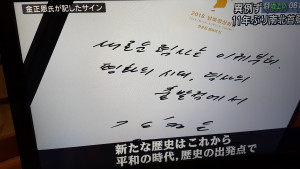 金正恩氏が記したサイン
異例ず
11年ぶり南北首
2018
새로운 력사는 이제부터.
평화의 시대, 력사의
출발점에서
김정은
新たな歴史はこれから
平和の時代，歴史の出発点で